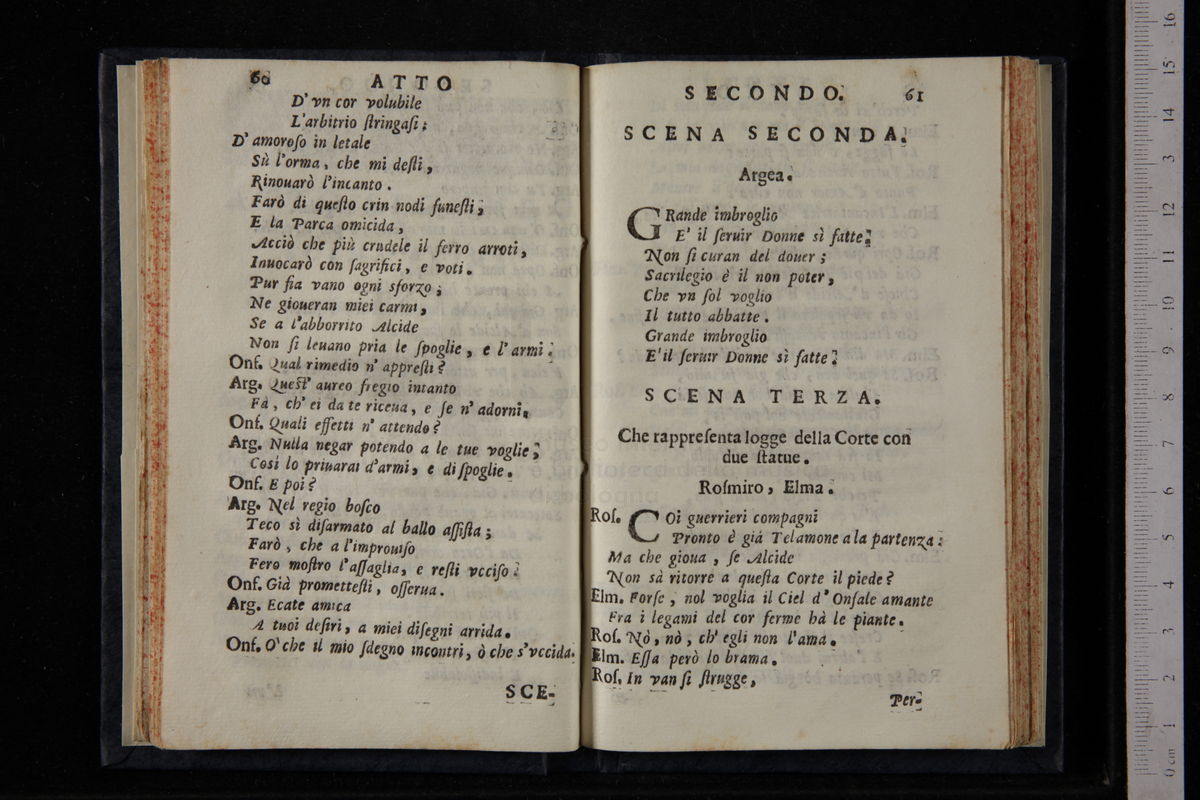 60 ATTO
D'vn cor volubile
L'arbitrio ſtringaſi;
D'amoroſo in letale
Sù l'orma, che mi deſti,
Rinouarò l'incanto.
Farò di queſto crin nodi funeſti;
E la Parca omicida,
Acciò che più crudele il ferro arroti,
Inuocarò con ſagrifici, e voti.
Pur fia vano ogni sforzo;
Ne gioueran miei carmi,
Se a l'abborrito Alcide
Non ſi leuano pria le ſpoglie, e l'armi.
Onf. Qual rimedio n'appreſti?
Arg. Queſt' aureo fregio intanto
Fà, ch'ei da te riceua, e ſe n'adorni.
Onf. Quali effetti n'attendo?
Arg. Nulla negar potendo a le tue voglie;
Così lo priuarai d'armi, e di ſpoglie.
Onf. E poi?
Arg. Nel regio boſco
Teco sì diſarmato al ballo aſſiſta;
Farò, che a l'improuiſo
Fero moſtro l'aſſaglia, e reſti vcciſo.
Onf. Già prometteſti, oſſerua.
Arg. Ecate amica
A tuoi deſiri, a miei diſegni arrida.
Onf. O' che il mio ſdegno incontri, ò che s'vccida.
SCE-
SECONDO. 61
SCENA SECONDA.
Argea.
GRande imbroglio
E' il ſeruir Donne sì fatte!
Non ſi curan del douer;
Sacrilegio è il non poter,
Che vn ſol voglio
Il tutto abbatte.
Grande imbroglio
E' il ſeruir Donne sì fatte!
SCENA TERZA.
Che rappreſenta logge della Corte con
due ſtatue.
Roſmiro, Elma.
Roſ. COi guerrieri compagni
Pronto è già Telamone a la partenza:
Ma che gioua, ſe Alcide
Non sà ritorre a queſta Corte il piede?
Elm. Forſe, nol voglia il Ciel d'Onfale amante
Fra i legami del cor ferme hà le piante.
Roſ. Nò, nò, ch'egli non l'ama.
Elm. Eſſa però lo brama.
Roſ. In van ſi ſtrugge,
Per-